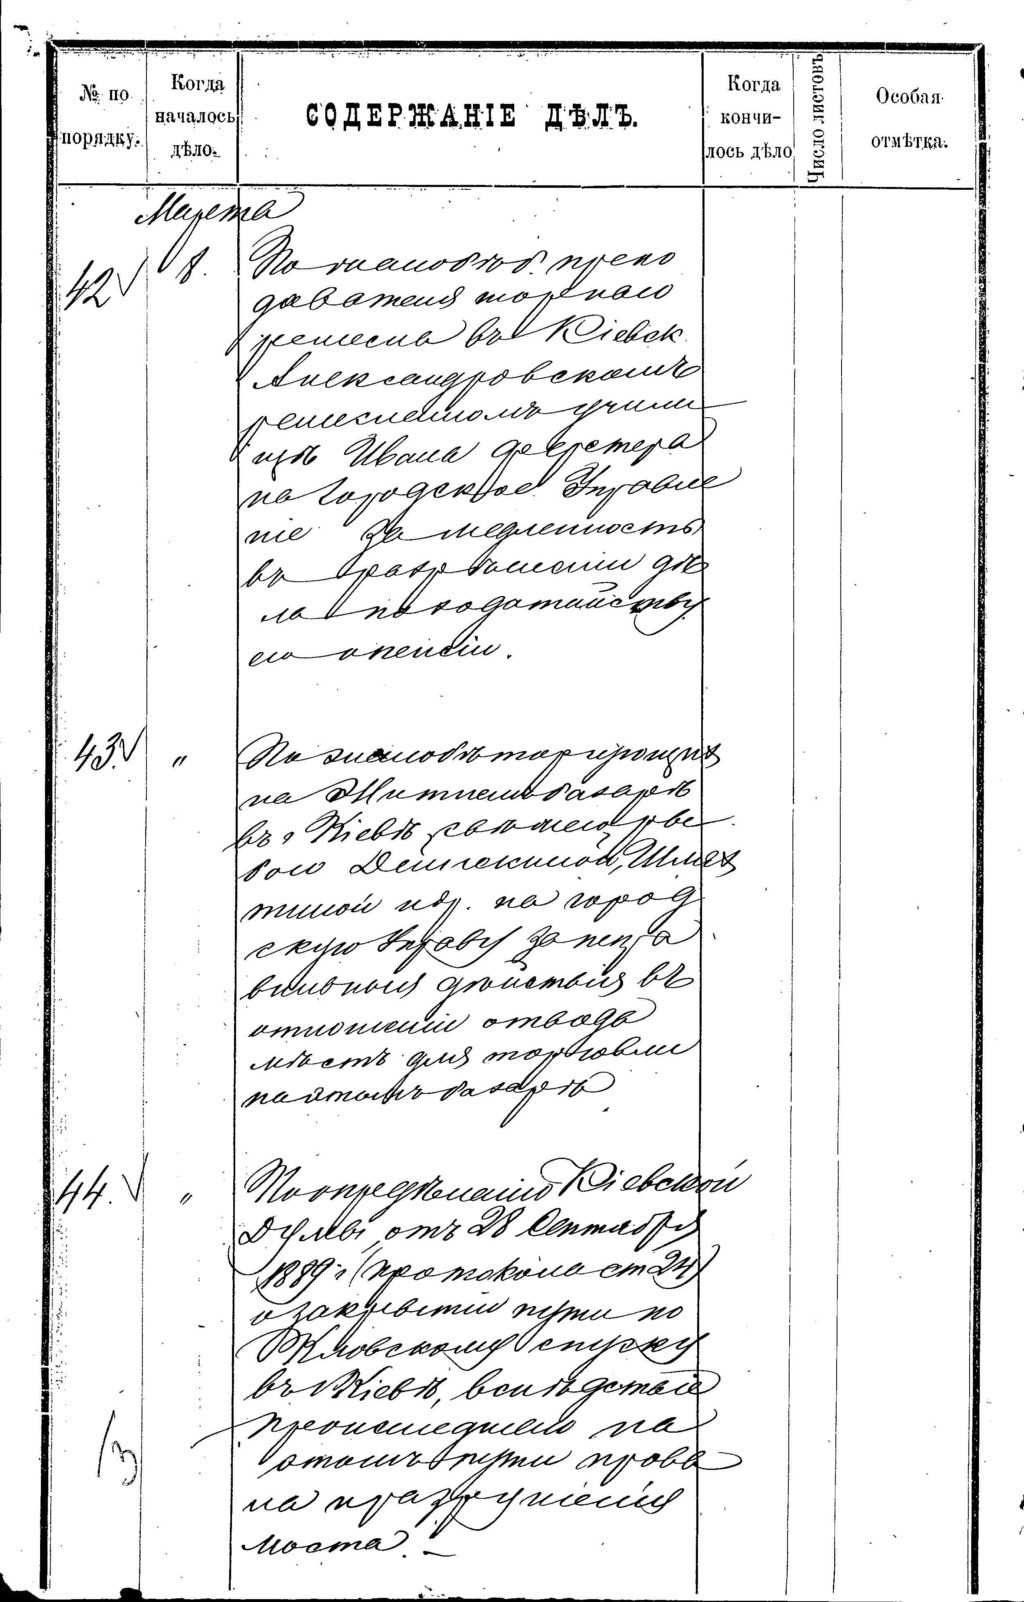 № по порядку.
Когда началось дѣло.
СОДЕРЖАНІЕ ДѢЛЪ.
Когда кончи-лось дѣло
Число листовъ
Особая отмѣтка.
Марта
42 8. По жалобѣ препо
давателя токарнаго
ремесла въ Кіевск.
Александровскомъ
ремесленномъ учили
щѣ Ивана
на Городское Управле
ніе за медленность
въ разрѣшеніи дѣ
ла по ходатайству
его о пенсіи.
43. " По жалобѣ торгующихъ
на Житнемъ базарѣ
въ г Кіевѣ
бою
и др. на город
скую Управу за непра
вильныя дѣйствія въ
отношеніи отвода
мѣстъ для торговли
на этомъ базарѣ
44. " По опредѣленію Кіевской
Думы отъ 28 Сентября
1889 г (протокола ст 24)
о закрытіи пути по
Кловскому спуску
въ г Кіевѣ, вслѣдствіе
происшедшаго на
этомъ пути прова
ла и разрушенія
моста.